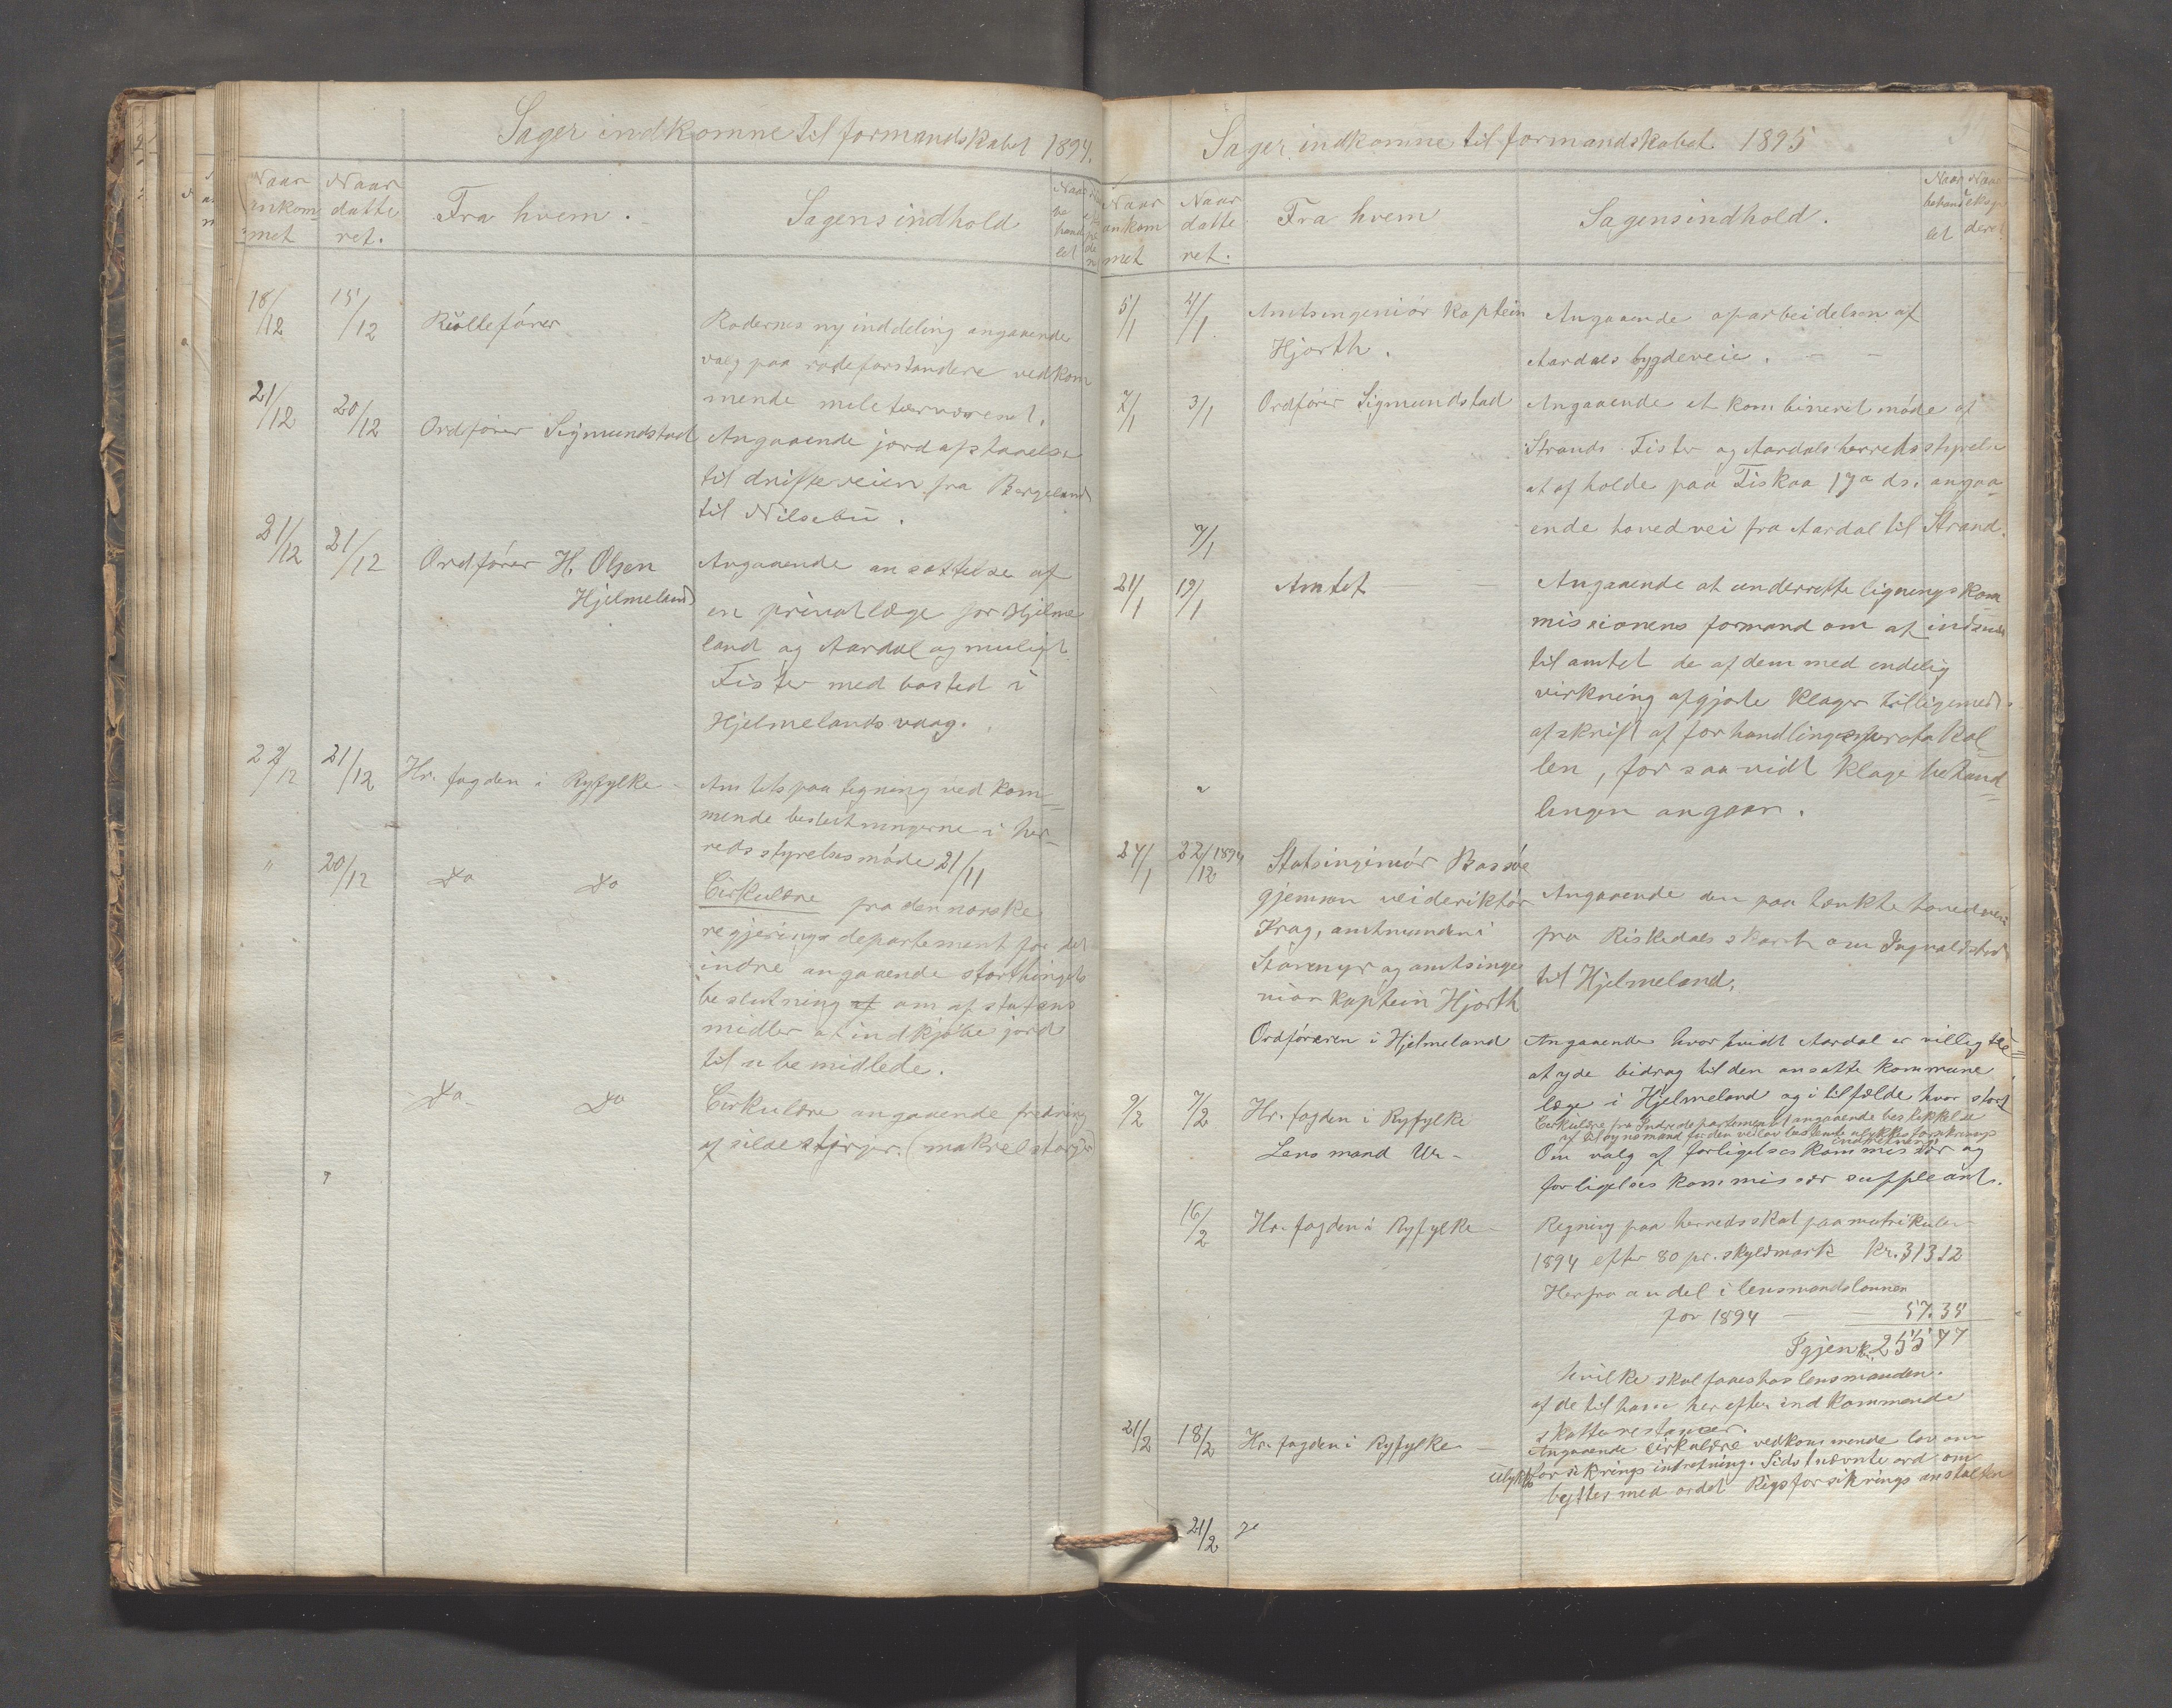 Sager indkomne til formandskabet 1894.
Naar ankommet
Naar datteret.
Fra hvem.
Sagensindhold
Naar behandlet
18/12 15/12 Rullefører
Rodernes ny inddeling angaaende
valg paa rodeforstandere vedkom
mende miletærvæsenet.
21/12 20/12 Ordfører Sigmundstad
Angaaende jordafstaaelse
til drifteveien fra Bergeland
til Nilsebu.
21/12 21/12 Ordfører H. Olsen
Hjelmeland
Angaaende ansættelse af
en privatlæge for Hjelme
land og Aardal og muligt
Fister med bosted i
Hjelmelandsvaag.
22/12 21/12 Hr. fogden i Ryfylke
Amtets paategning vedkom=
mende beslutningerne i her=
redsstyrelsesmøde 21/11
" 20/12 Do Do
Cirkulære fra den norske
regjerings departement for det
indre angaaende storthingets
beslutning af om af statens
midler at indkjøbe jord
til ubemidlede.
Do Do
Cirkulære angaaende fredning
af sildestørjer. (makrelstørjer)
Sager indkomne til formandskabet 1895
Naar ankommet
Naar datteret.
Fra hvem
Sagensindhold.
Naar behandlet
Naar ekspederet
5/1 4/1 Amtsingeniør kaptein
Hjorth.
Angaaende oparbeidelsen af
Aardals bygdeveie.
7/1 3/1 Ordfører Sigmundstad
Angaaende et kombineret møde af
Strands Fister og Aardals herredsstyrelse
at afholde paa Tiskaa 17de ds. angaa=
ende hovedvei fra Aardal til Strand.
7/1
21/1 19/1 Amtet
Angaaende at underrette lignings kom
missionens formand om at indsende
til amtet de af dem med endelig
virkning afgjorte klager tilligemed
afskrift af forhandlingsprotokol
len, for saavidt klage behand=
lingen angaar.
24/1 22/12 1894 Statsingeniør Bassøe
gjennem veideriktør
Krag, amtmanden i
Stavanger og amtsinge
niør kaptein Hjorth
Angaaende den paatænkte hovedvei
fra Riskedals skard om Ingvaldstad
til Hjelmeland.
Ordføreren i Hjelmeland
Angaaende hvorvidt Aardal er villig til
at yde bidrag til den ansatte kommune
læge i Hjelmeland og i tilfælde hvor stort
9/2 7/2 Hr. fogden i Ryfylke
Cirkulære fra Indredepartementet angaaende beskikkelse
af tilsynsmand for den ved lov bestemte ulykkesforsikrings
indretning
Lensmand Ur
Om valg af forligelseskommissær og
forligelses kommissær suppleant.
16/2 Hr. fogden i Ryfylke
Regning paa herredsskat paa matrikulen
1894 efter 80 pr. skyldmark kr. 313 12
Herfra andel i lensmandslønnen
for 1894 57.35
Igjen kr. 255 77
hvilke skal faaes hos lensmanden.
af de til ham herefter indkommende
skatterestancer.
21/2 18/2 Hr. fogden i Ryfylke
Angaaende cirkulære vedkommende lov om
ulykkesforsikrings indretning. Sidstnævnte ord om
byttes med ordet Rigsforsikrings anstalten
21/2